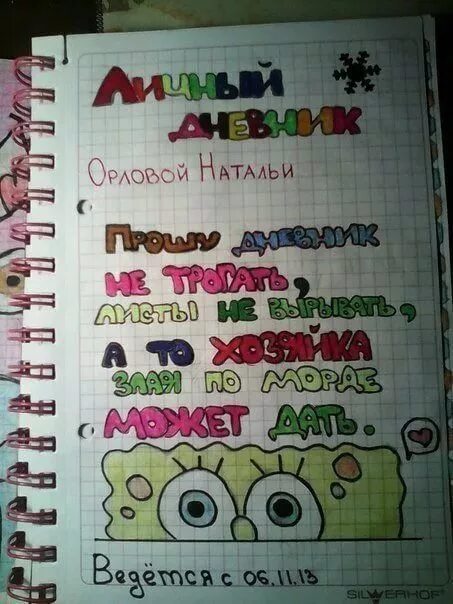 Личный
дневник
Орловой Натальи
Прошу дневник
не трогать,
листы не вырывать,
а то хозяйка
злая по морде
может дать.
Ведётся с 06.11.13
SILWERHOF